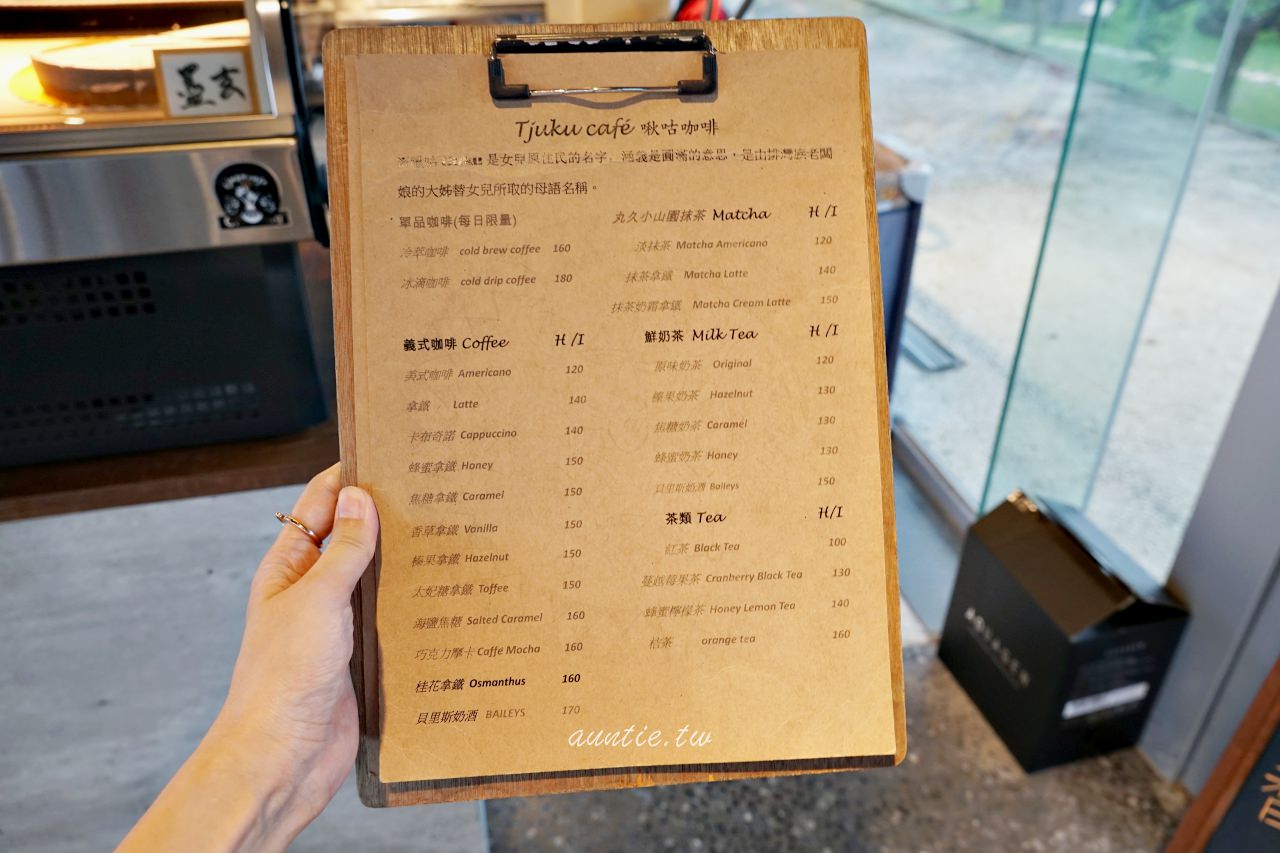 Tjuku café 啾咕咖啡
是女兒原住民的名字,涵義是圓滿的意思,是由排灣族老闆
娘的大姊替女兒所取的母語名稱。
單品咖啡(每日限量)
冷萃咖啡 cold brew coffee 160
冰滴咖啡 cold drip coffee 180
義式咖啡 Coffee H/I
美式咖啡 Americano 120
拿鐵 Latte 140
卡布奇諾 Cappuccino 140
蜂蜜拿鐵 Honey 150
焦糖拿鐵 Caramel 150
香草拿鐵 Vanilla 150
榛果拿鐵 Hazelnut 150
太妃糖拿鐵 Toffee 150
海鹽焦糖 Salted Caramel 160
巧克力摩卡 Caffe Mocha 160
桂花拿鐵 Osmanthus 160
貝里斯奶酒 BAILEYS 170
丸久小山園抹茶 Matcha H/I
淡抹茶 Matcha Americano 120
抹茶拿鐵 Matcha Latte 140
抹茶奶霜拿鐵 Matcha Cream Latte 150
鮮奶茶 Milk Tea H/I
原味奶茶 Original 120
榛果奶茶 Hazelnut 130
焦糖奶茶 Caramel 130
蜂蜜奶茶 Honey 130
貝里斯奶酒 Baileys 150
茶類 Tea H/I
紅茶 Black Tea 100
蔓越莓果茶 Cranberry Black Tea 130
蜂蜜檸檬茶 Honey Lemon Tea 140
桔茶 orange tea 160
auntie.tw